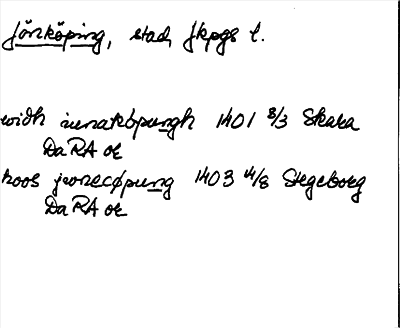 Jönköping, stad, Jkpgs l.
widh iunakôpungh 1401 8/3 Skara
DaRA or
hoos jønecøpung 1403 14/8 Stegeborg
DaRA or